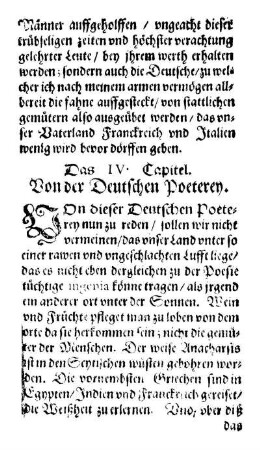 Männer auffgeholffen / vngeacht dieser
trübseligen zeiten vnd höchster verachtung
gelehrter Leute / bey jhrem werth erhalten
werden; sondern auch die Deutsche / zu wel-
cher ich nach meinem armen vermögen all-
bereit die fahne auffgesteckt / von stattlichen
gemütern also außgeübet werden / das vn-
ser Vaterland Franckreich vnd Italien
wenig wird bevor dörffen geben.
Das IV. Capitel.
Von der Deutschen Poeterey.
VOn dieser Deutschen Poete-
rey nun zu reden / sollen wir nicht
vermeinen / das vnser Land vnter so
einer rawen vnd vngeschlachten Lufft liege /
das es nicht eben dergleichen zu der Poesie
tüchtige ingenia könne tragen / als jrgend
ein anderer ort vnter der Sonnen. Wein
vnd Früchte pfleget man zu loben von dem
orte da sie herkommen sein; nicht die gemü-
ter der Menschen. Der weise Anacharsis
ist in den Scytischen wüsten gebohren wor-
den. Die vornemsten Griechen sind in
Egypten / Indien vnd Franckreich gereiset /
die Weißheit zu erlernen. Vnd / vber diß
das